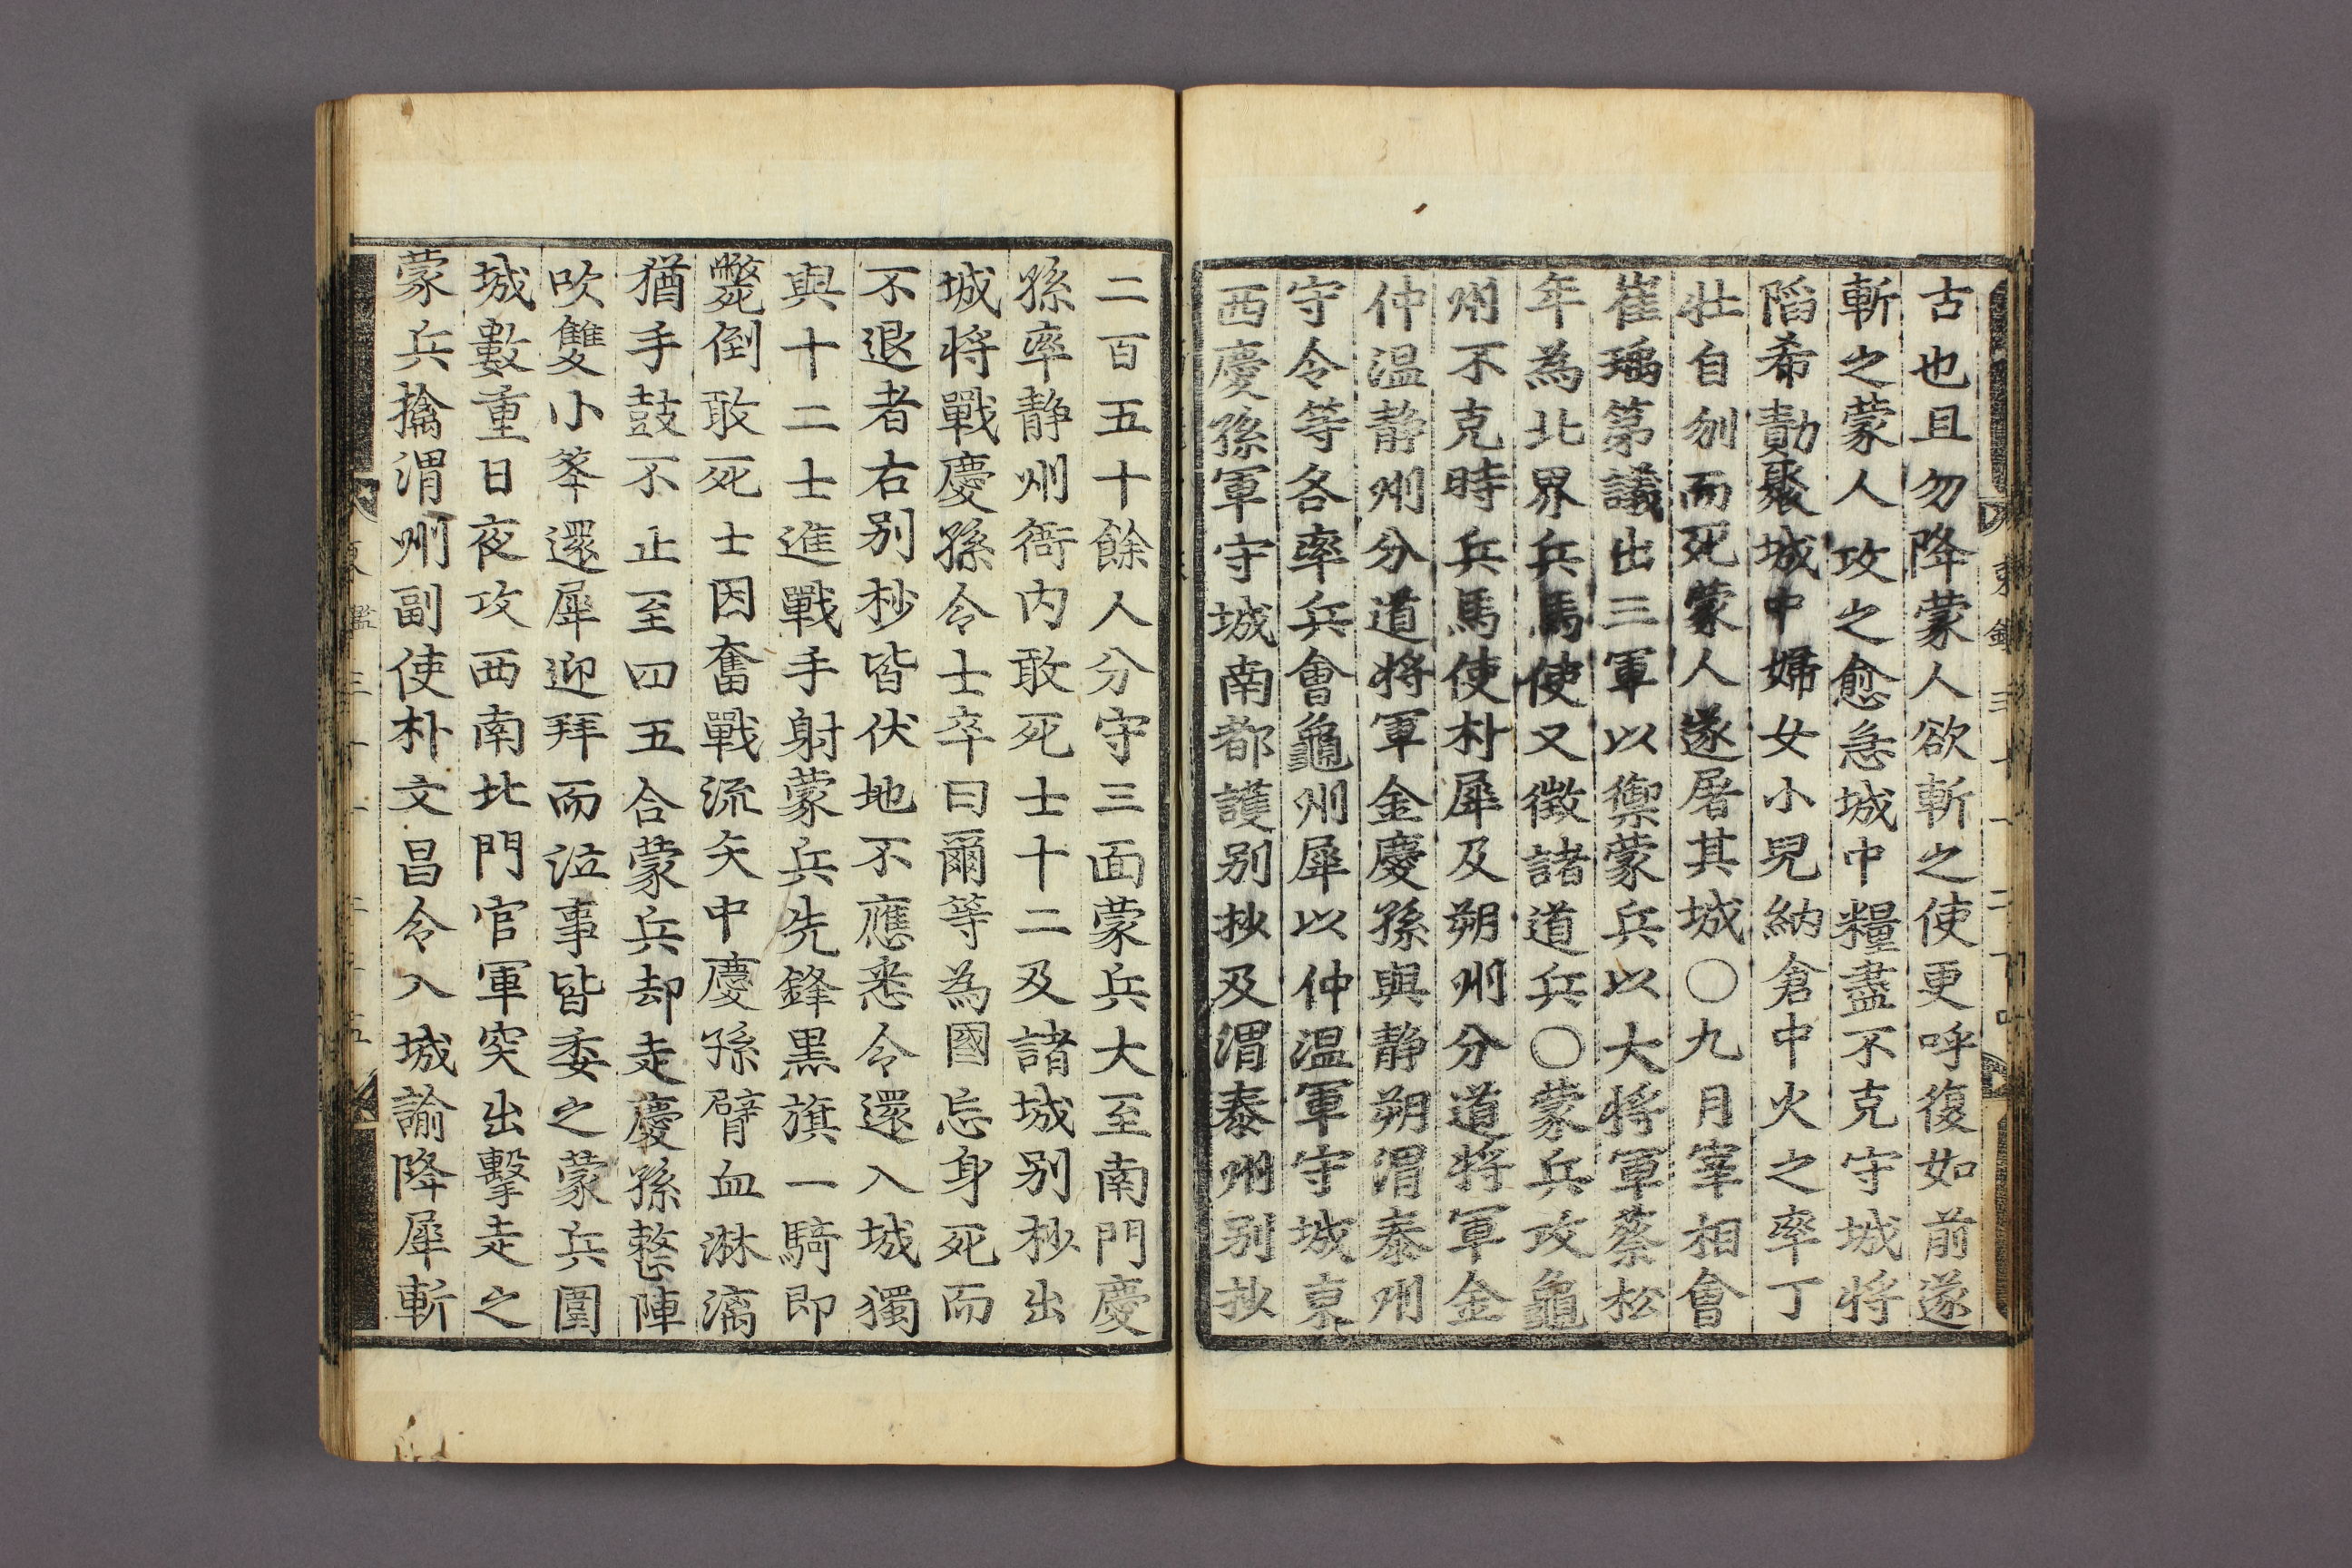 古也且勿降蒙人欲斬之使更呼復如前遂
斬之蒙人攻之愈急城中糧盡不克守城將
陷希勣聚城中婦女小兒納倉中火之率丁
壯自刎而死蒙人遂屠其城○九月宰相會
崔瑀第議出三軍以禦蒙兵以大將軍蔡松
年為北界兵馬使又徵諸道兵○蒙兵攻龜
州不克時兵馬使朴犀及朔州分道將軍金
仲温静州分道將軍金慶孫與静朔渭泰州
守令等各率兵會龜州犀以仲温軍守城東
西慶孫軍守城南都護别抄及渭泰州别抄
二百五十餘人分守三面蒙兵大至南門慶
孫率静州衙内敢死士十二及諸城别抄出
城將戰慶孫令士卒曰爾等為國忘身死而
不退者右别抄皆伏地不應悉令還入城獨
與十二士進戰手射蒙兵先鋒黒旗一騎即
斃倒敢死士因奮戰流矢中慶孫臂血淋漓
猶手鼓不止至四五合蒙兵却走慶孫整陣
吹雙小笒還犀迎拜而泣事皆委之蒙兵圍
城數重日夜攻西南北門官軍突出擊走之
蒙兵擒渭州副使朴文昌令入城諭降犀斬